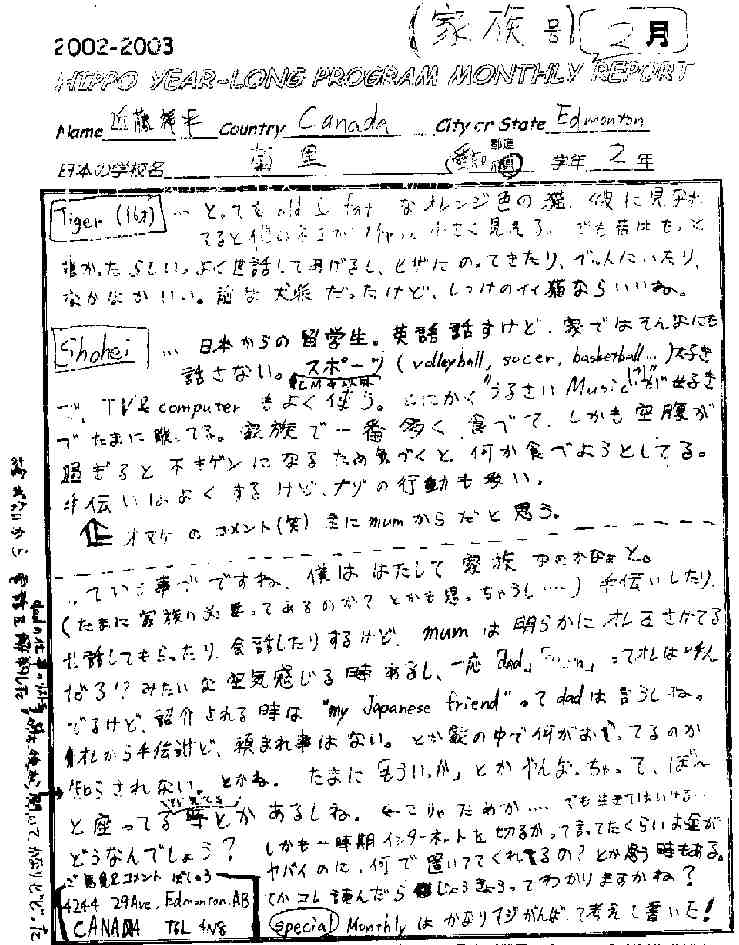 (家族号) 2月
2002-2003
HIPPO YEAR-LONG PROGRAM MONTHLY REPORT
Name 近藤 平 Country Canada City or State Edmonton
日本の学校名 愛知 都道府県 学年 2 年
Tiger (16才) … とってもold & fatなオレンジ色の猫。彼に見なれ
てると 小さく見える。でも昔はもっと
よく世話してあげるし、ヒザにのってきたり、ベッドにいたり、
なかなかいい。 犬派だったけど、しつけのイイ猫ならいいね。
Shohei … 日本からの留学生。英語話すけど、家ではそんなにも
話さない。スポーツ (volleyball, socer, basketball…)大好き
で、TV & computerもよく使う。とにかく"うるさいMusic"が好き
で たまに 家族で一番多く食べて、しかも空腹が
過ぎると不キゲンになるため気づくと何か食べようとしてる。
手伝いはよくするけど、ナゾの行動も多い。
オマケのコメント(笑) 主にmumからだと思う。
…ていう事でですね、僕ははたして家族なのかなぁと。
(たまに家族の必要ってあるのか とかも思っちゃうし…) 手伝いしたり、
世話してもらったり、会話したりするけど、mumは明らかにオレをさけてる
だろ!?みたいな空気感じる時あるし、一応「dad」「mum」ってオレは呼ん
でるけど、紹介される時は "my Japanese friend" ってdadは言うしね。
オレから手伝うけど、頼まれ事はない。とか家の中で何がおきてるのか
知らされない。とかね。たまに「もういいか」とか って、ぼ〜
と座ってる事とかあるしね。 でも生きてはいける…
どうなんでしょう?
しかも一時期インターネットを切るかって言ってたくらいお金が
ヤバイのに、何で置いててくれてるの?とか思う時もある。
ご意見コメント ぼしゅう
てかコレ読んだら じょうきょうってわかりますかね?
4244 29 Ave, Edmonton, AB
CANADA T6L 4N8
special Monthlyは かなりマジがんばって考えて書いた!